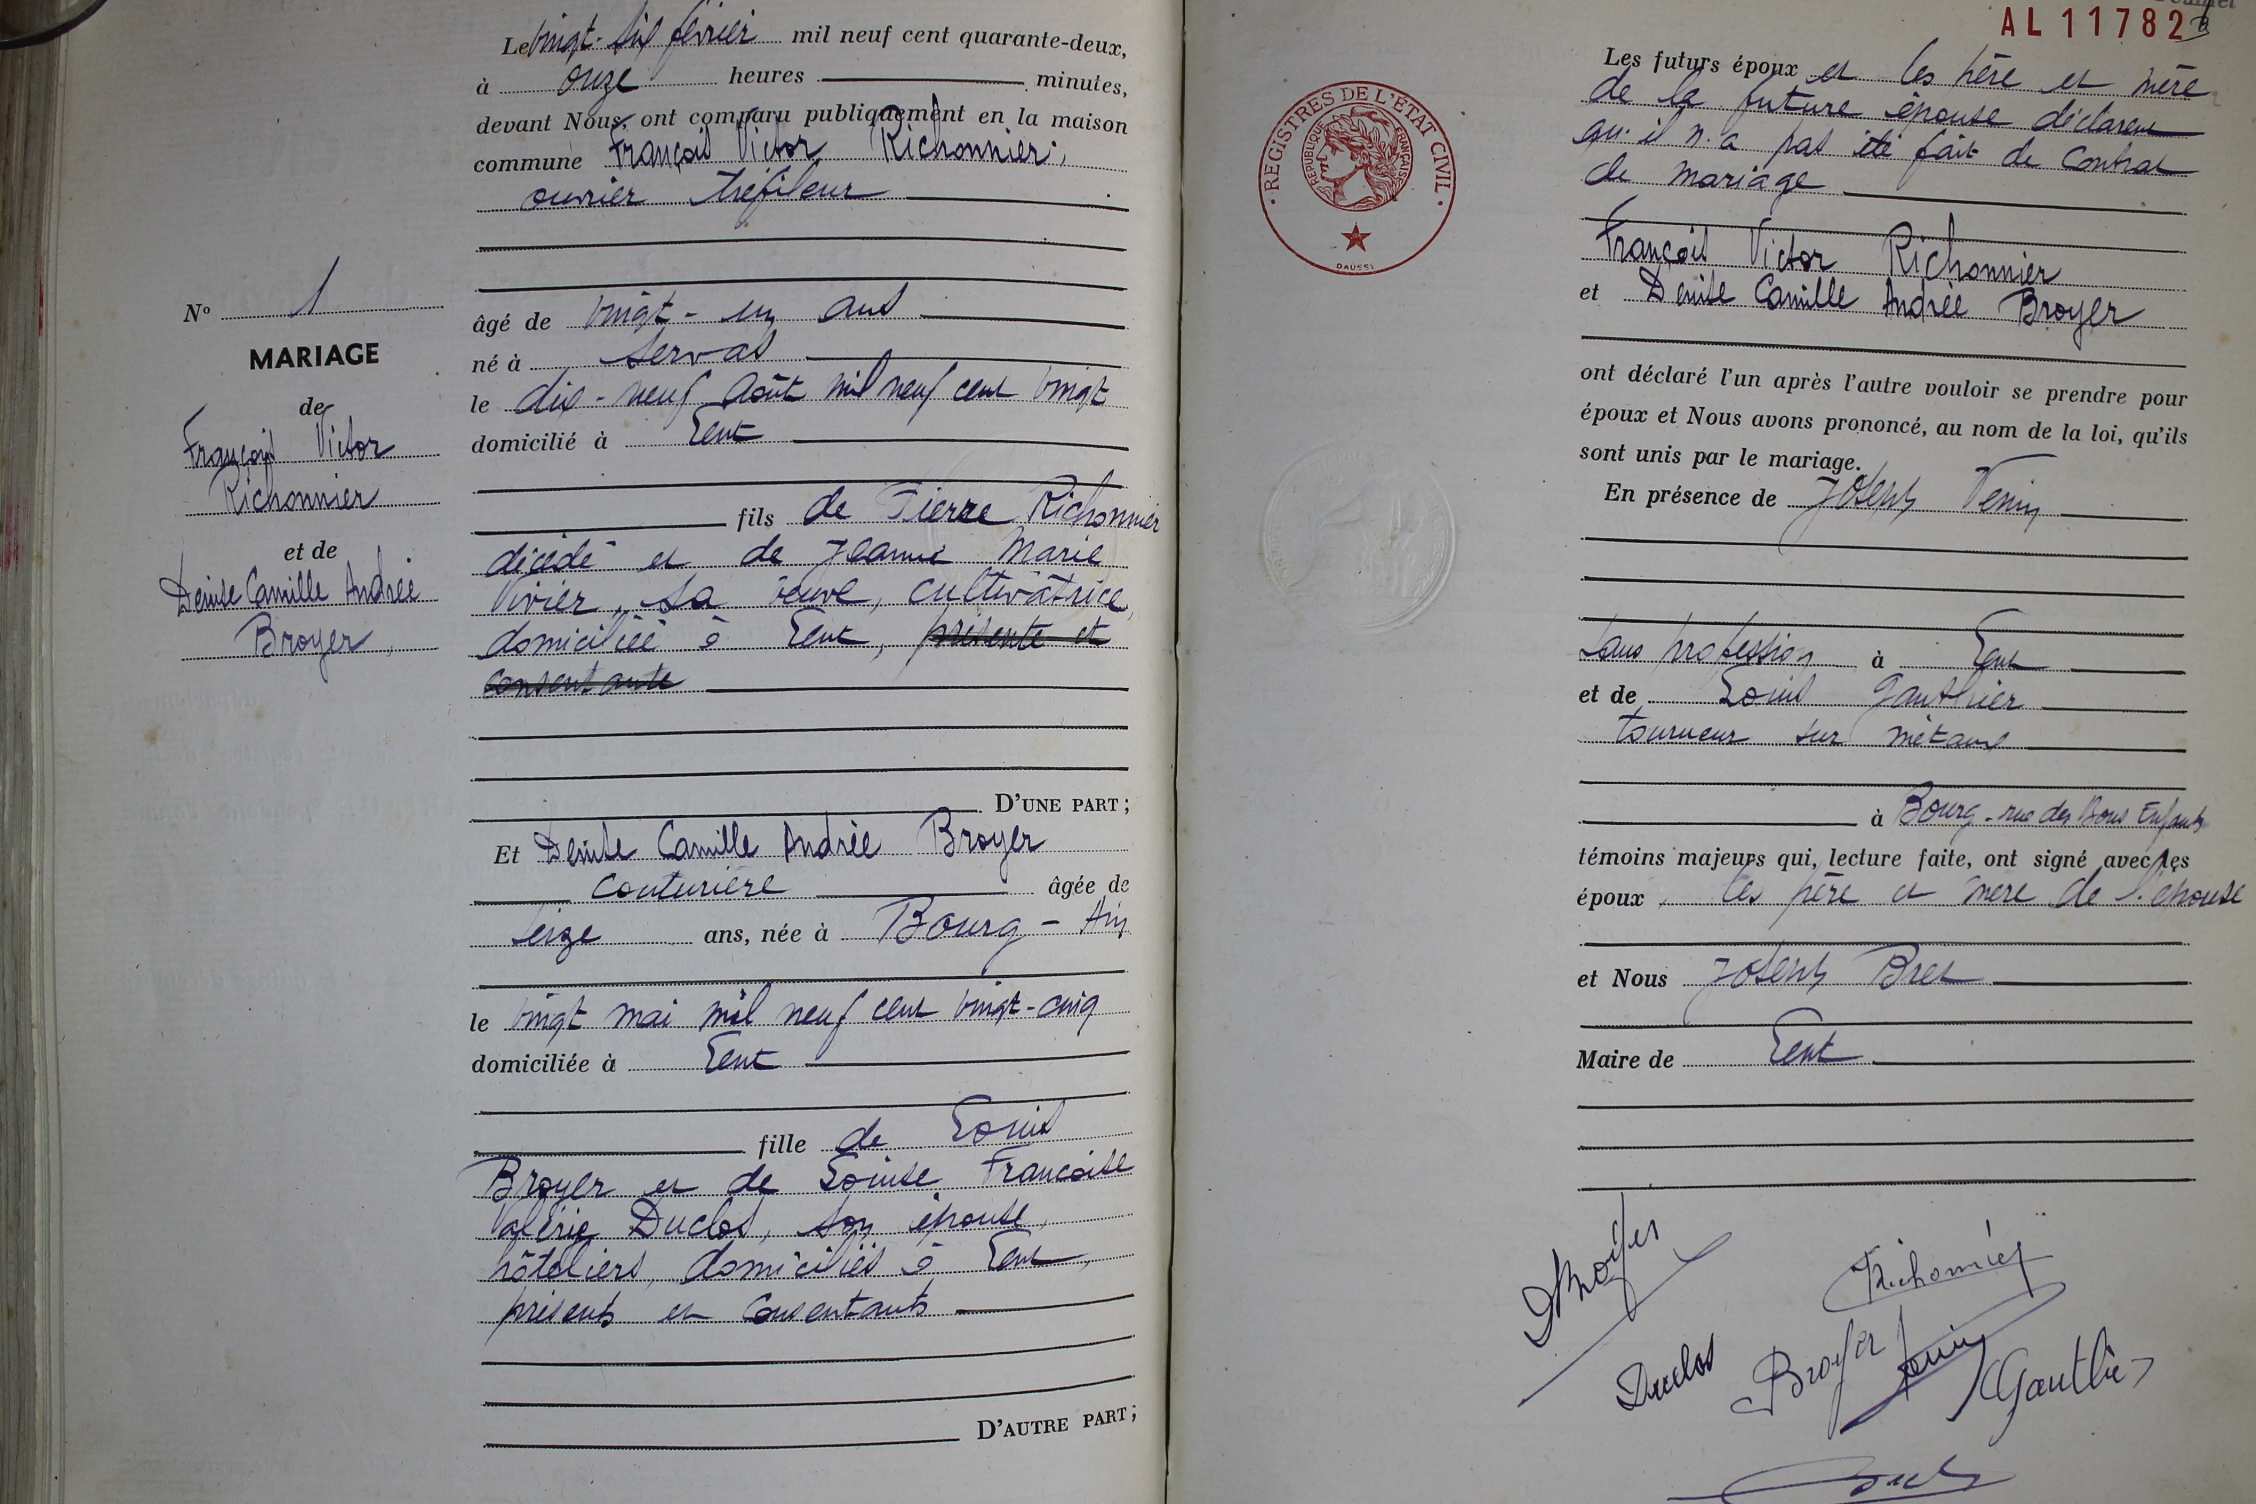 Le vingt-six février mil neuf cent quarante-deux,
à onze heures minutes,
devant Nous, ont comparu publiquement en la maison
commune François Victor Richonnier,
ouvrier tréfileur
Nº 1
MARIAGE
de
François Victor
Richonnier
et de
Denise Camille Andrée
Broyer
âgé de vingt-un ans
né à Servas
le dix-neuf août mil neuf cent vingt
domicilié à Lent
fils de Pierre Richonnier
décédé et de Jeanne Marie
Vivier, sa veuve, cultivatrice,
domiciliée à Lent, présente et
consentante
D'UNE PART ;
Et Denise Camille Andrée Broyer
couturière âgée de
seize ans, née à Bourg - Ain
le vingt mai mil neuf cent vingt-cinq
domiciliée à Lent
fille de Louis
Broyer et de Louise Françoise
Valérie Duclos, son épouse,
hôteliers, domiciliés à Lent,
présents et consentants
D'AUTRE PART ;
AL 11782
REGISTRES DE L'ETAT CIVIL
REPUBLIQUE FRANÇAISE
DAUSSI
Les futurs époux et les père et mère
de la future épouse déclarent
qu'il n'a pas été fait de contrat
de mariage
François Victor Richonnier
et Denise Camille Andrée Broyer
ont déclaré l'un après l'autre vouloir se prendre pour
époux et Nous avons prononcé, au nom de la loi, qu'ils
sont unis par le mariage.
En présence de Joseph Venin
sans profession à Lent
et de Louis Gauthier
tourneur sur métaux
à Bourg - rue des Bons Enfants
témoins majeurs qui, lecture faite, ont signé avec les
époux, les père et mère de l'épouse
et Nous Joseph Bret
Maire de Lent
DBroyer
Richonnier
Duclos
Broyer
Venin
Gauthier